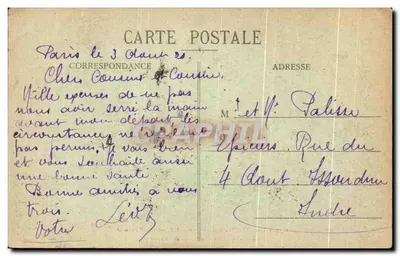 CARTE POSTALE
CORRESPONDANCE
ADRESSE
Paris le 3 Août 21
Chers Cousins et Cousine
Mille excuses de ne pas
vous avoir serré la main
avant mon départ les
circonstances ne
pas permis. Je vous
et vous souhaite aussi
une bonne santé.
Bonne amitiés à vous
trois.
Votre
M et Mme Palisse
Epiciers Rue du
4 Août Issoudun
Indre